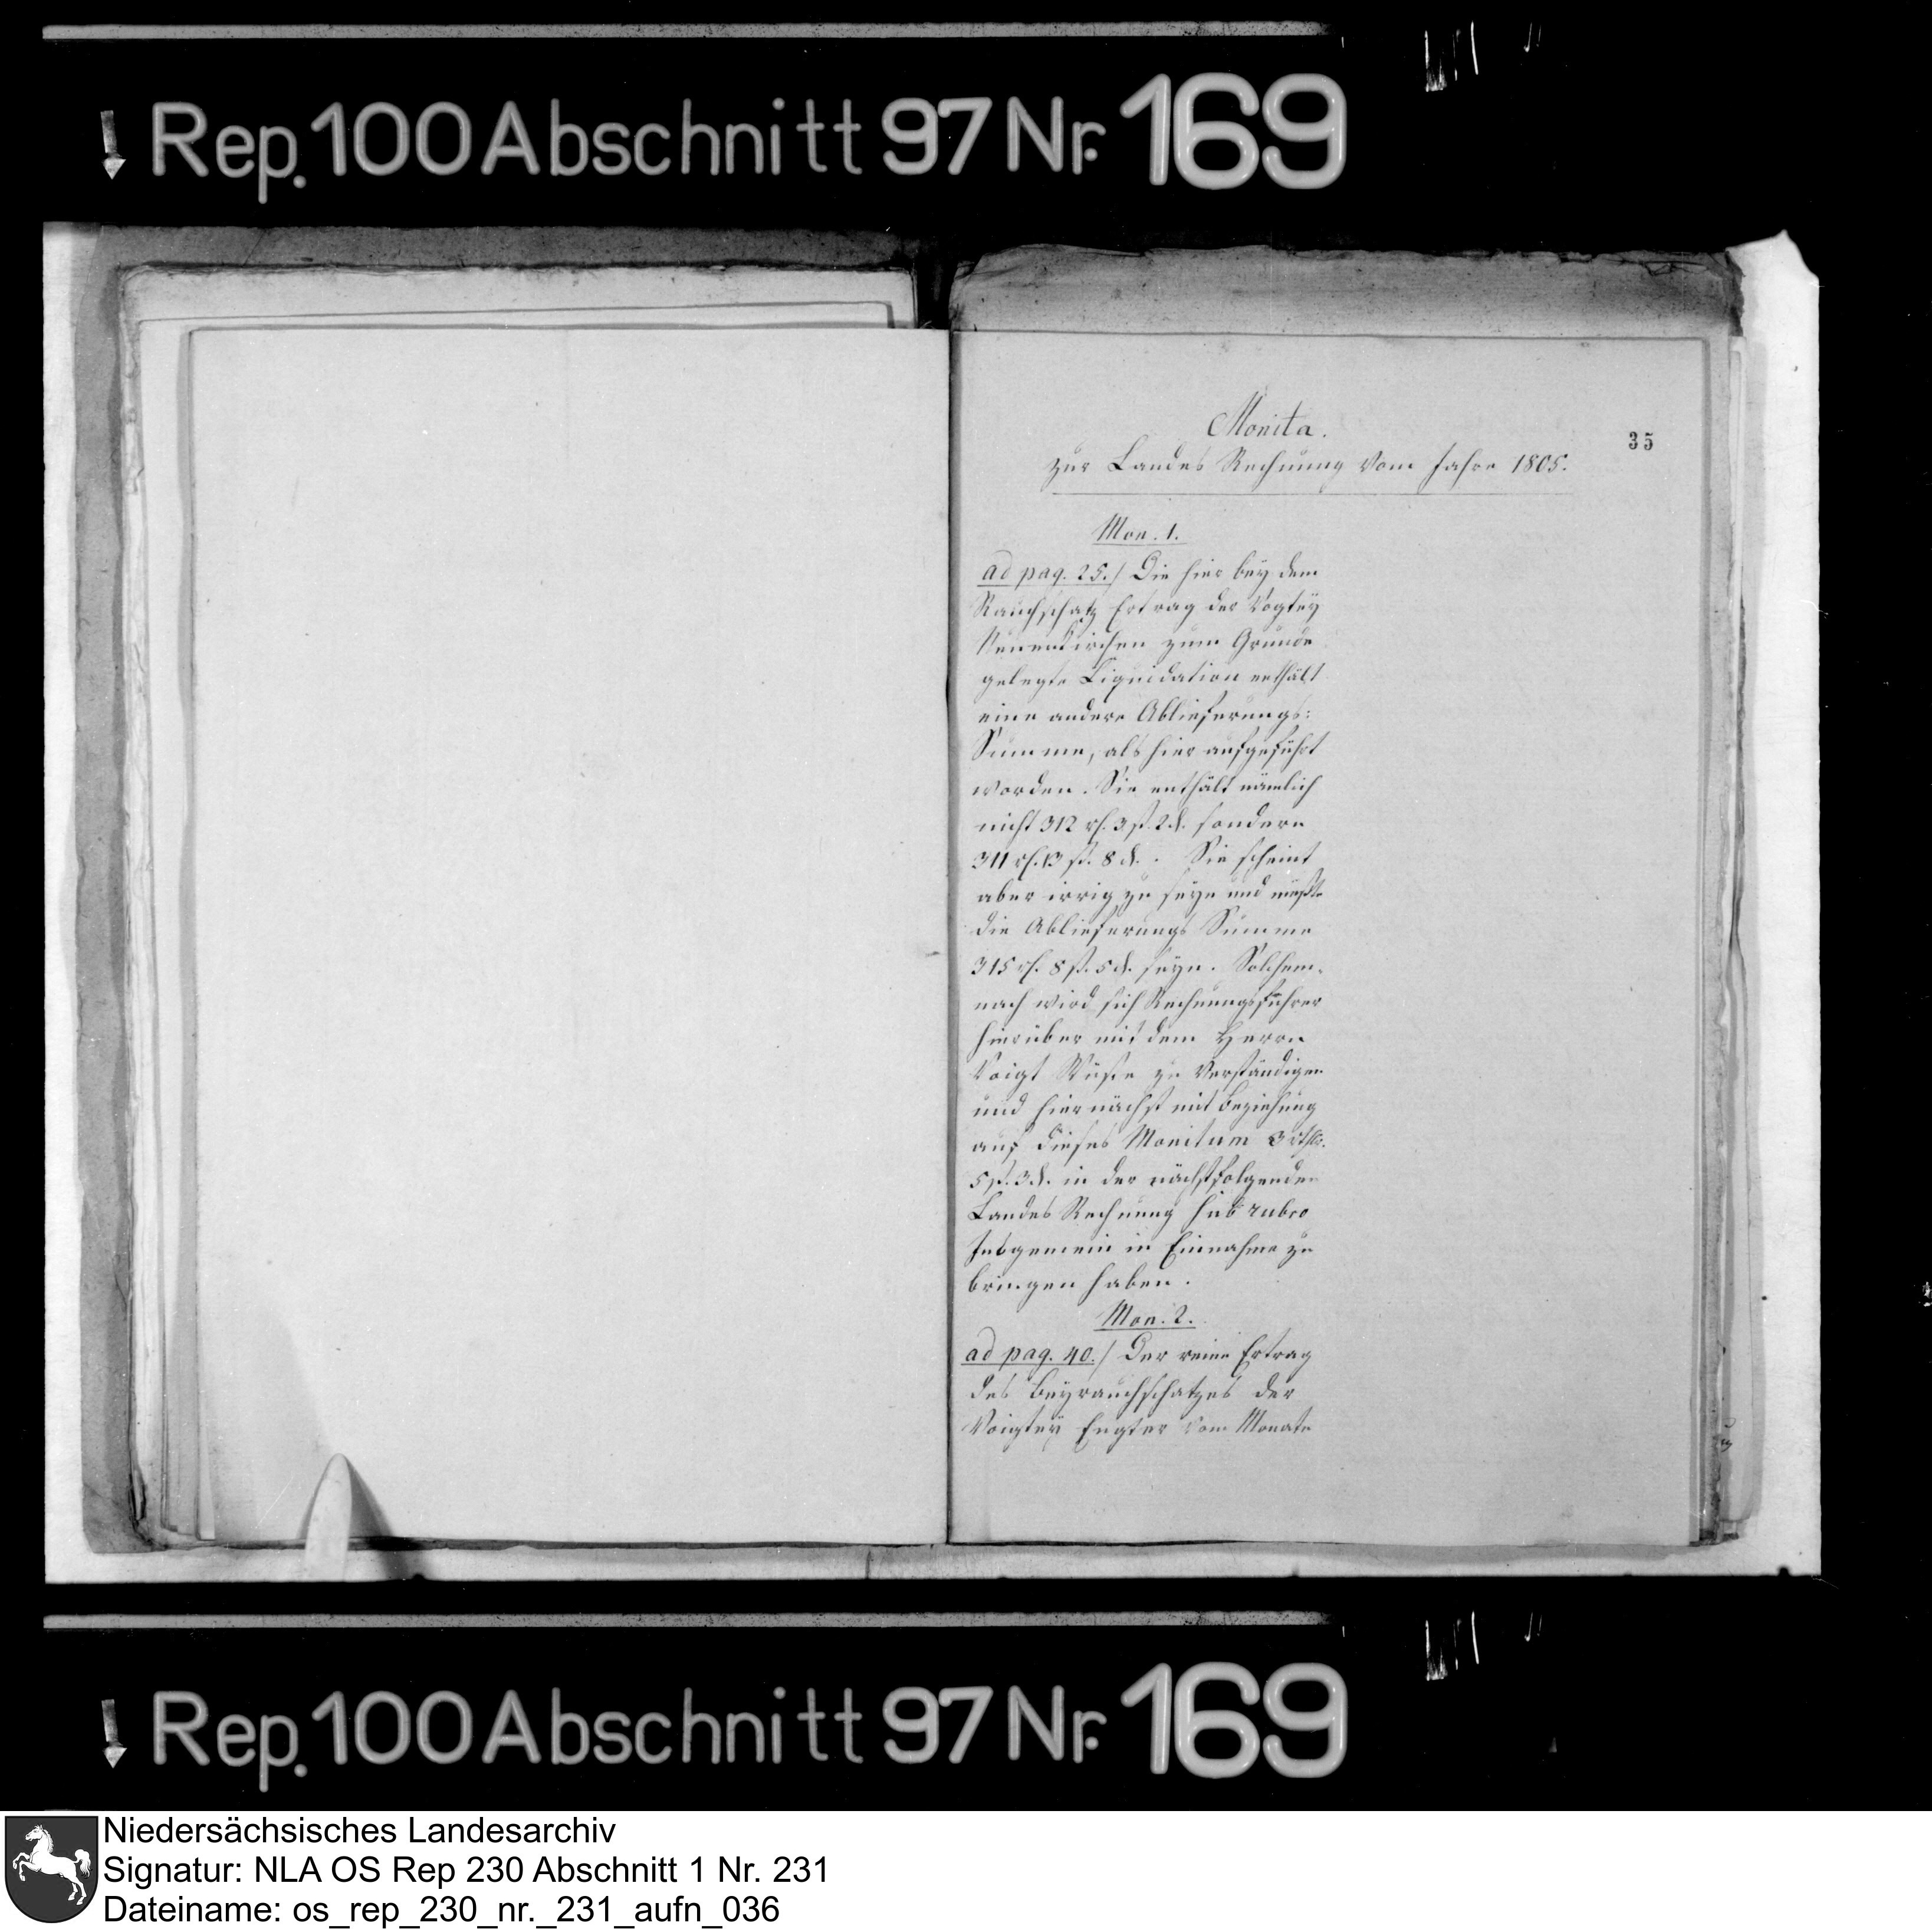 Rep. 100 Abschnitt 97 Nr. 169
35
Monita.
zur Landes Rechnung vom Jahre 1805.
Mon. 1.
ad pag. 25./ Die hier bey dem
Rauchschatz Ertrag der Vogtey
Neuenkirchen zum Grunde
gelegte Liquidation enthält
eine andere Ablieferungs:
Summe, als hier aufgeführt
worden. Sie enthält nämlich
nicht 312 rh. 3 ß. 2 d. sondern
311 rh. 13 ß. 8 d. Sie scheint
aber irrig zu seyn und müßte
die Ablieferungs Summe
315 rh. 8 ß. 5 d. seyn. Solchem-
nach wird sich Rechnungsführer
hierüber mit dem Herrn
Voigt zu verständigen
und hiernächst mit Beziehung
auf dieses Monitum 3 rthlr.
5 ß. 3 d. in der nächstfolgenden
Landes Rechnung sub rubro
Insgemein in Einnahme zu
bringen haben.
Mon. 2.
ad pag. 40./ Der reine Ertrag
des Beyrauchschatzes der
Voigtey Engter vom Monate
Rep. 100 Abschnitt 97 Nr. 169
Niedersächsisches Landesarchiv
Signatur: NLA OS Rep 230 Abschnitt 1 Nr. 231
Dateiname: os_rep_230_nr._231_aufn_036